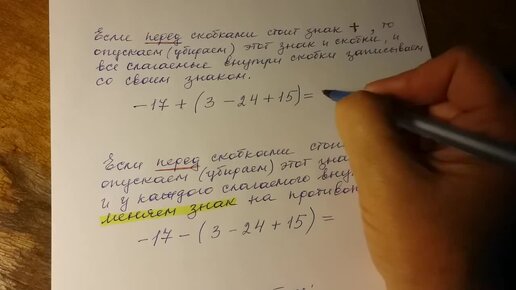 Если перед скобками стоит знак +, то
опускаем (убираем) этот знак и скобки, и
все слагаемые внутри скобки записываем
со своим знаком.
-17 + (3 - 24 + 15) =
Если перед скобками
опускаем (убираем) этот
и у каждого слагаемого
меняем знак на
-17 - (3 - 24 + 15) =